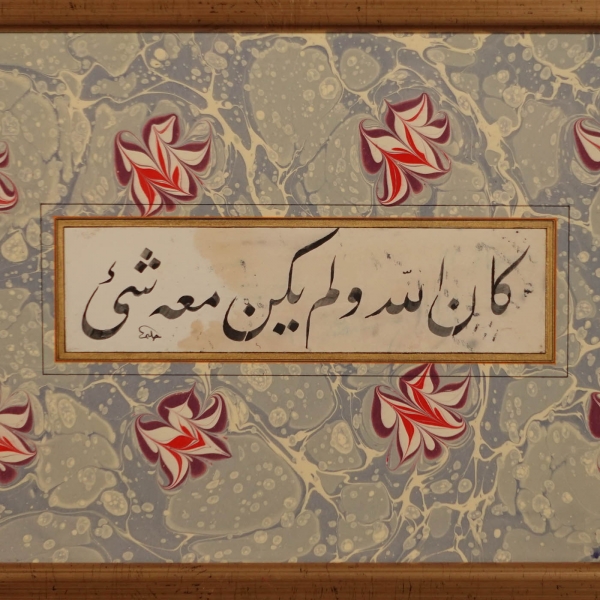 كان الله ولم يكن معه شئ